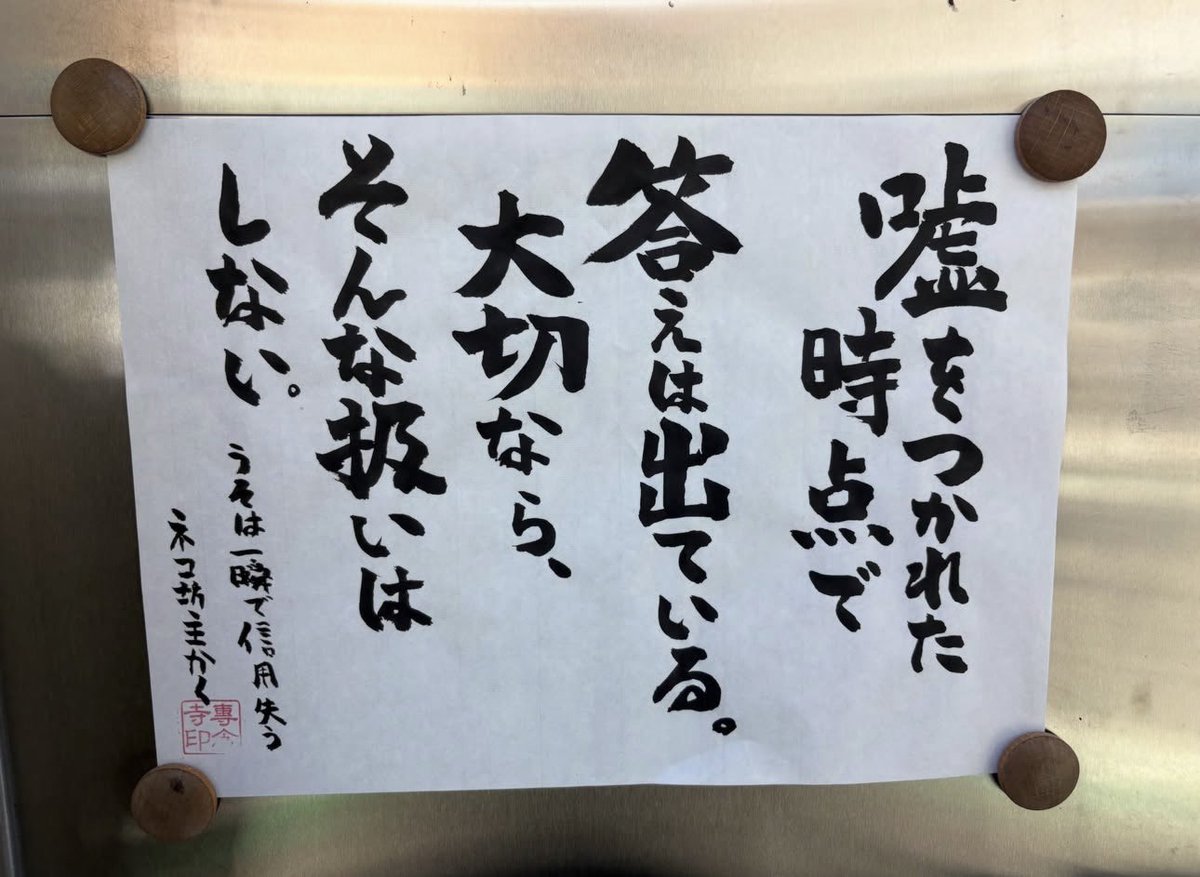 嘘をつかれた
時点で
答えは出ている。
大切なら、
そんな扱いは
しない。
うそは一瞬で信用失う
ネコ坊主かく
專念
寺印